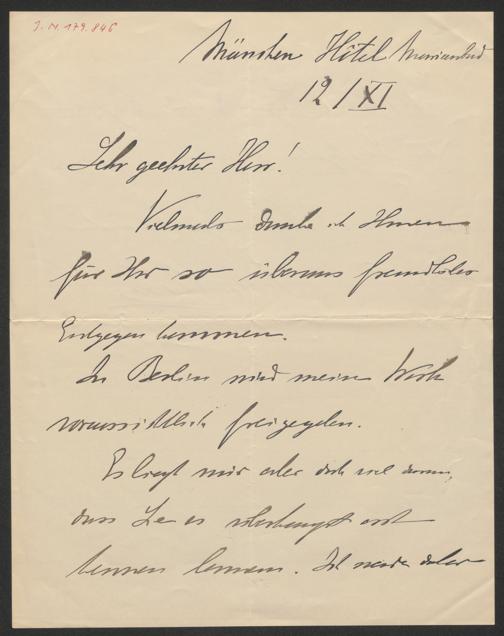 J. N. 179.846
München Hôtel Marienbad
12/XI
Sehr geehrter Herr!
Vielmals danke ich Ihnen
für Ihr so überaus freundliches
Entgegenkommen.
In Berlin wird mein Werk
voraussichtlich freigegeben.
Es liegt mir aber doch viel daran,
dass Sie es überhaupt erst
kennen lernen. Ich werde daher